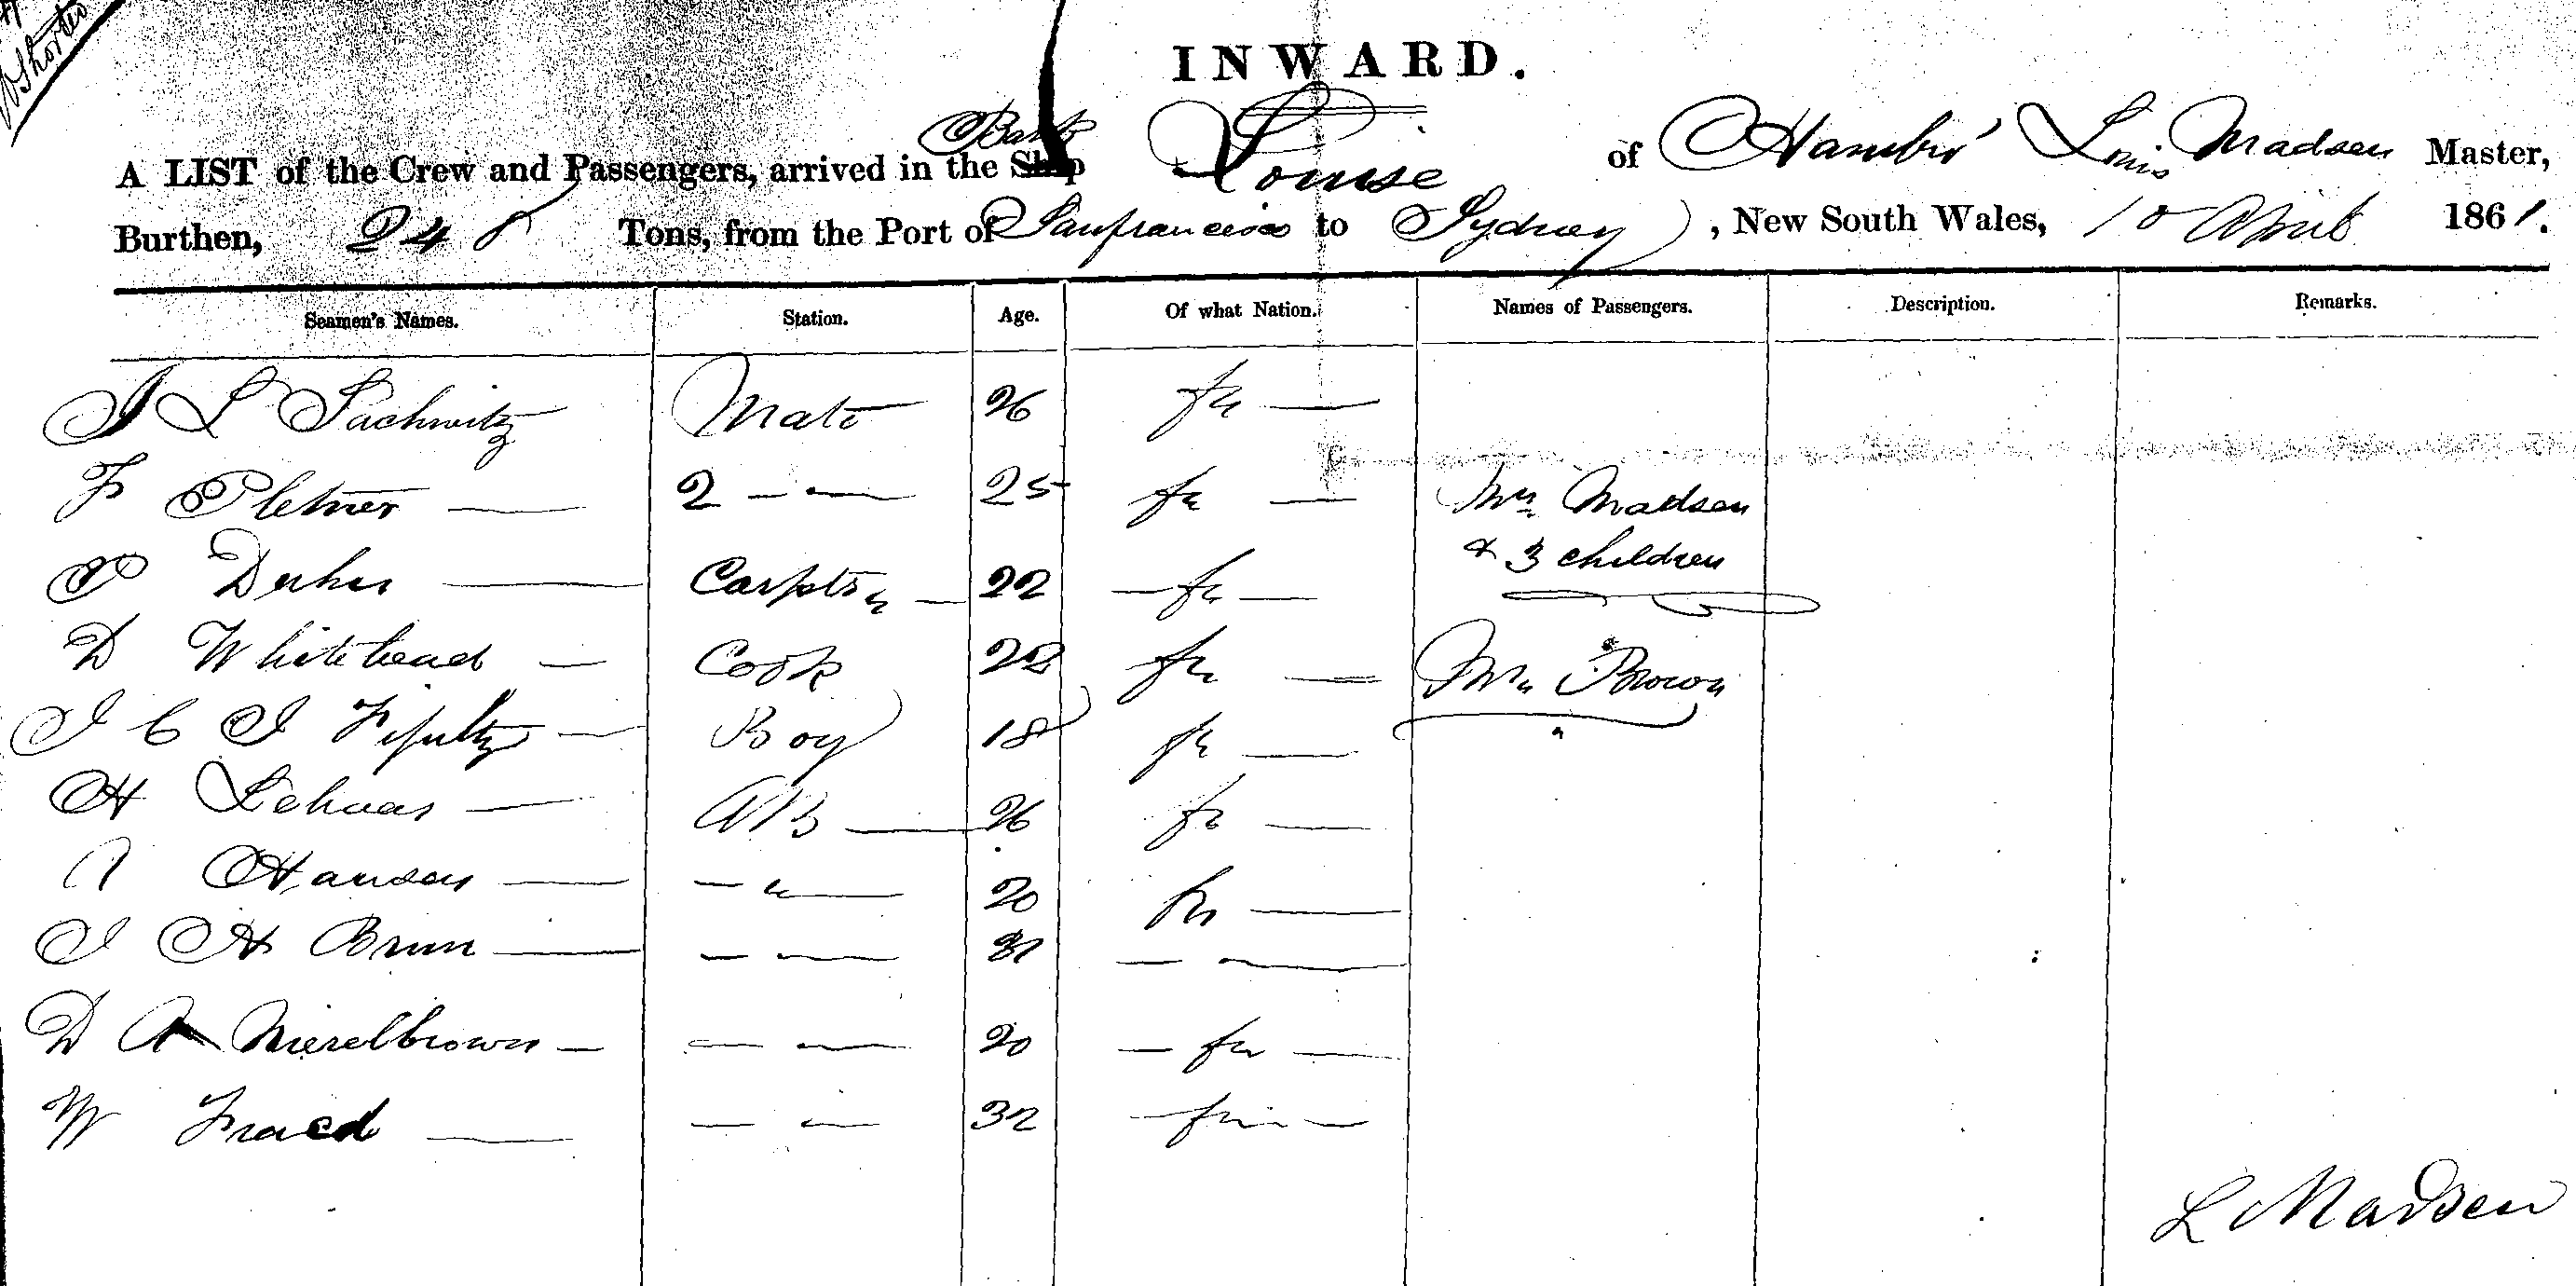 Shorter
INWARD.
Bark
A LIST of the Crew and Passengers, arrived in the Ship Louise of Hambro' Louis Madsen Master,
Burthen, 248 Tons, from the Port of Sanfrancisco to Sydney, New South Wales, 10 April 1861.
Seamen's Names. Station. Age. Of what Nation. Names of Passengers. Description. Remarks.
J L Sachwitz Mate 26
F Pletner 2 — — 25 Mrs Madsen
& 3 children
P Carptr 22
D Whitehead Cook 22 Mr Brown
J C J Boy 18
H AB 26
Hansen — " — 20
J H Brun — — 31 — —
D A — — 20
W — — 32
L Madsen